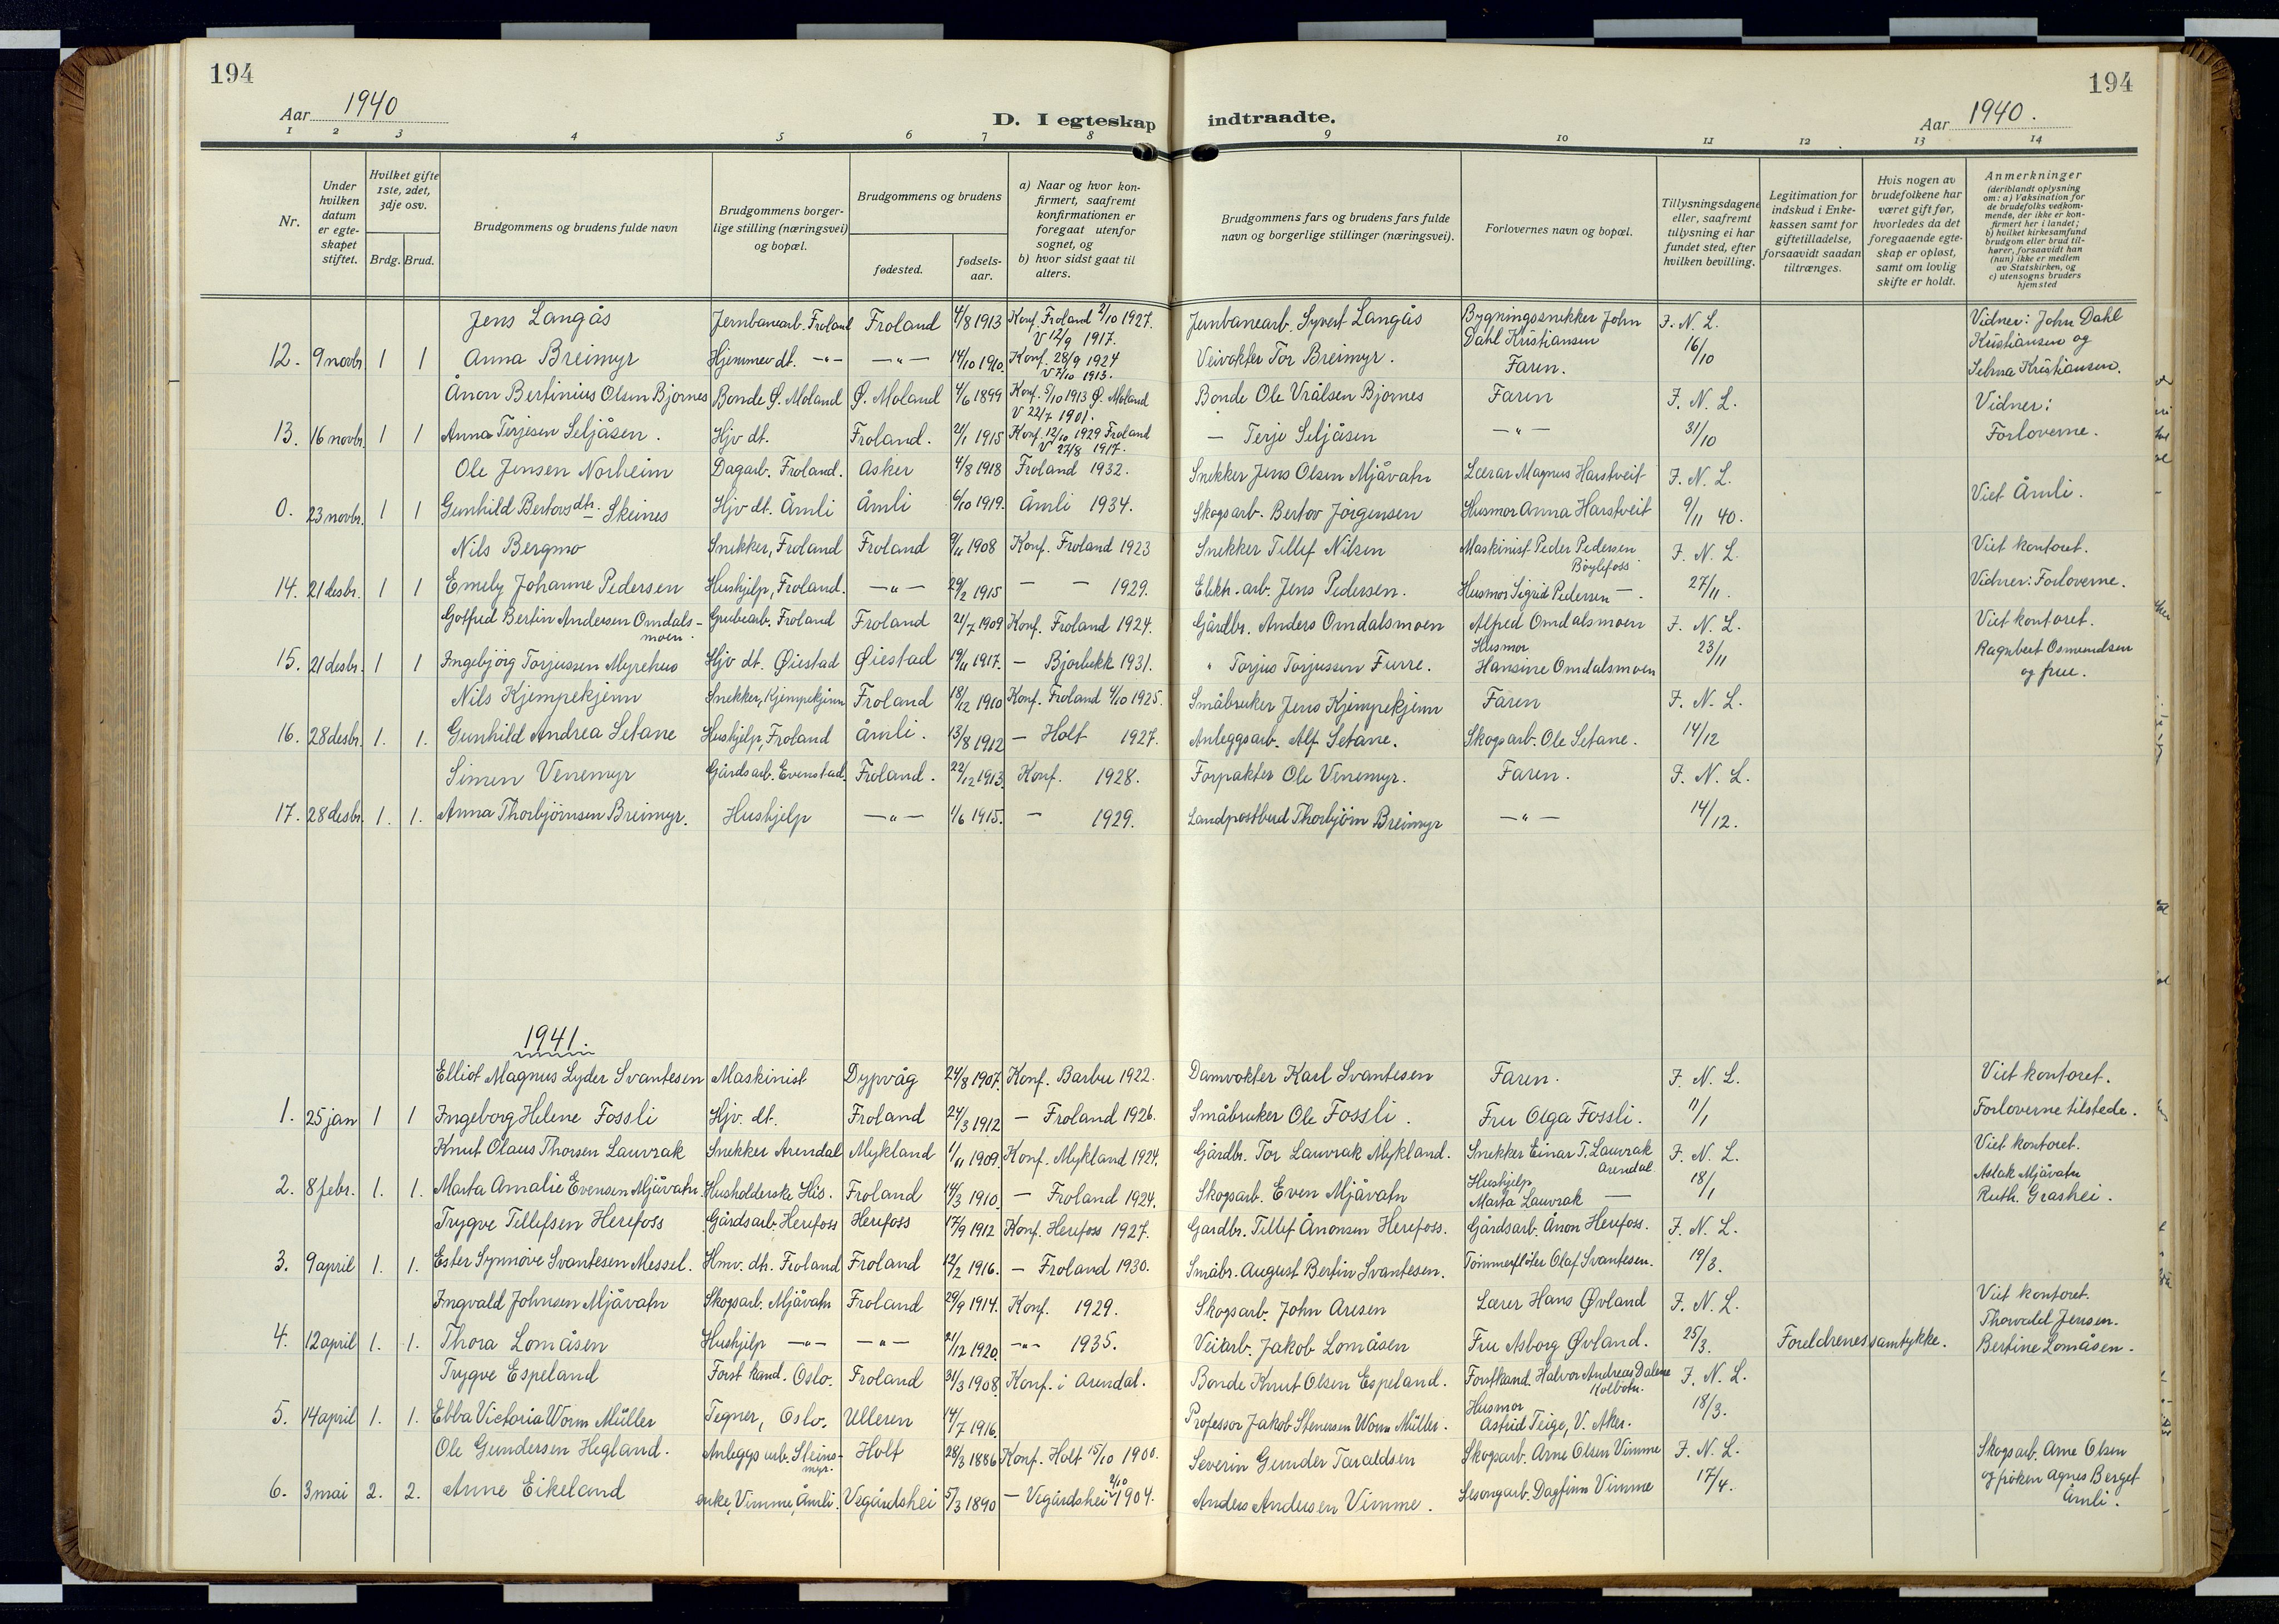 194
194
Aar 1940
D. I egteskap indtraadte.
Aar 1940.
1 2 3 4 5 6 7 8 9 10 11 12 13 14
Nr.
Under hvilken datum er egte-skapet stiftet.
Hvilket gifte 1ste, 2det, 3dje osv.
Brdg. Brud.
Brudgommens og brudens fulde navn
Brudgommens borger-lige stilling (næringsvei) og bopæl.
Brudgommens og brudens
fødested.
fødsels-aar.
a) Naar og hvor kon-firmert, saafremt konfirmationen er foregaat utenfor sognet, og
b) hvor sidst gaat til alters.
Brudgommens fars og brudens fars fulde navn og borgerlige stillinger (næringsvei).
Forlovernes navn og bopæl.
Tillysningsdagene eller, saafremt tillysning ei har fundet sted, efter hvilken bevilling.
Legitimation for indskud i Enke-kassen samt for giftetilladelse, forsaavidt saadan tiltrænges.
Hvis nogen av brudefolkene har været gift før, hvorledes da det foregaaende egte-skap er opløst, samt om lovlig skifte er holdt.
Anmerkninger (deriblandt oplysning om: a) Vaksination for de brudefolks vedkom-mende, der ikke er kon-firmert her i landet; b) hvilket kirkesamfund brudgom eller brud til-hører, forsaavidt han (hun) ikke er medlem av Statskirken, og c) utensogns bruders hjemsted
Jens Langås Jernbanearb. Froland Froland 4/8 1913 Konf. Froland 2/10 1927. V 12/9 1917. Jernbanearb. Syvert Langås Bygningssnekker John Dahl Kristiansen F. N. L. Vidner: John Dahl
12. 9 novbr. 1 1 Anna Breimyr Hjemmev. dt. —"— —"— 14/10 1910. Konf. 28/9 1924 V 7/10 1913. Veivokter Tor Breimyr. Faren. 16/10 Kristiansen og Selma Kristiansen.
Ånon Bertinius Olsen Bjornes Bonde Ø. Moland Ø. Moland 4/6 1899 Konf. 5/10 1913 Ø. Moland V 22/7 1901. Bonde Ole Vrålsen Bjornes Faren F. N. L. Vidner:
13. 16 novbr. 1 1 Anna Terjesen Seljåsen. Hjv dt. Froland. 21/1 1915 Konf. 12/10 1929 Froland V 27/8 1917. — Terje Seljåsen —"— 31/10 Forloverne.
Ole Jensen Norheim Dagarb. Froland. Asker 4/8 1918 Froland 1932. Snekker Jens Olsen Mjåvatn Lærar Magnus Harstveit F. N. L.
0. 23 novbr. 1 1 Gunhild Bertovsdtr. Skeines Hjv dt. Åmli Åmli 6/10 1919. Åmli 1934. Skogsarb. Bertov Jörgensen Husmor Anna Harstveit 9/11 40. Viet Åmli.
Nils Bergmo Snekker, Froland Froland 9/11 1908 Konf. Froland 1923 Snekker Tellef Nilsen Maskinist Peder Pedersen Böylefoss F. N. L. Viet kontoret.
14. 21 desbr. 1 1 Emely Johanne Pedersen Hushjelp, Froland. —"— 29/2 1915 — — 1929. Elektr. arb. Jens Pedersen. Husmor Sigrid Pedersen —. 27/11. Vidner: Forloverne.
Gotfred Bertin Andersen Omdals-moen. Grubearb. Froland Froland 21/7 1909 Konf. Froland 1924. Gårdbr. Anders Omdalsmoen Alfred Omdalsmoen F. N. L. Viet kontoret.
15. 21 desbr. 1 1 Ingebjörg Torjussen Myrehus Hjv dt. Øiestad Øiestad 19/11 1917. — Bjorbekk 1931. " Torjus Torjussen Furre. Husmor Hansine Omdalsmoen 23/11 Ragnbert Osmundsen og frue.
Nils Kjempekjenn Snekker, Kjempekjenn Froland 18/12 1910 Konf. Froland 4/10 1925. Småbruker Jens Kjempekjenn Faren F. N. L.
16. 28 desbr. 1. 1. Gunhild Andrea Setane Hushjelp, Froland Åmli. 13/8 1912 — Holt 1927. Anleggsarb. Alf Setane. Skogsarb. Ole Setane. 14/12
Simen Venemyr Gårdsarb. Evenstad. Froland. 22/12 1913. Konf. 1928. Forpakter Ole Venemyr. Faren. F. N. L.
17. 28 desbr. 1. 1. Anna Thorbjörnsen Breimyr. Hushjelp —"— 1/6 1915. — 1929. Landpostbud Thorbjörn Breimyr —"— 14/12.
1941.
Elliot Magnus Lyder Svantesen Maskinist Dypvåg 24/8 1907. Konf. Barbu 1922. Damvokter Karl Svantesen Faren. F. N. L. Viet kontoret.
1. 25 jan 1 1 Ingeborg Helene Fossli Hjv. dt. Froland 24/3 1912 — Froland 1926. Småbruker Ole Fossli. Fru Olga Fossli. 11/1 Forloverne tilstede.
Knut Olaus Thorsen Lauvrak Snekker Arendal Mykland 1/11 1909. Konf. Mykland 1924. Gårdbr. Tor Lauvrak Mykland. Snekker Einar T. Lauvrak Arendal F. N. L. Viet kontoret.
2. 8 febr. 1. 1. Marta Amalie Evensen Mjåvatn. Husholderske His. Froland 14/3 1910. — Froland 1924. Skogsarb. Even Mjåvatn Hushjelp Marta Lauvrak — 18/1 Aslak Mjåvatn Ruth. Grashei.
Trygve Tellefsen Herefoss Gårdsarb. Herefoss Herefoss 17/9 1912 Konf. Herefoss 1927. Gardbr. Tellef Ånonsen Herefoss. Gårdsarb. Ånon Herefoss. F. N. L.
3. 9 april 1. 1. Ester Synnöve Svantesen Messel. Hmv. dtr. Froland Froland 12/2 1916. — Froland 1930. Småbr. August Bertin Svantesen. Tömmerflöter Olaf Svantesen. 19/3.
Ingvald Johnsen Mjåvatn Skogsarb. Mjåvatn Froland 29/9 1914. Konf. 1929. Skogsarb. John Aresen Lærer Hans Øvland F. N. L. Viet kontoret.
4. 12 april 1. 1. Thora Lomåsen Hushjelp —"— —"— 21/12 1920. —"— 1935. Veiarb. Jakob Lomåsen Fru Asborg Øvland. 25/3. Foreldrenes samtykke. Thorvald Jensen. Bertine Lomåsen.
Trygve Espeland Forst kand. Oslo. Froland 31/3 1908. Konf. i Arendal. Bonde Knut Olsen Espeland. Forstkand. Halvor Andreas Dalene Kolbotn. F. N. L.
5. 14 april 1. 1. Ebba Victoria Worm Müller Tegner, Oslo. Ulleren 14/7 1916. Professor Jakob Stenersen Worm Müller. Husmor Astrid Teige, V. Aker. 18/3.
Ole Gundersen Hegland. Anleggsarb. Steins-myr. Holt 28/3 1886 Konf. Holt 15/10 1900. Severin Gunder Taraldsen Skogsarb. Arne Olsen Vimme F. N. L. Skogsarb. Arne Olsen
6. 3 mai 2. 2. Anne Eikeland enke, Vimme, Åmli. Vegårdshei 5/3 1890 — Vegårdshei 2/10 1904. Anders Andersen Vimme. Sesongarb. Dagfinn Vimme 17/4. og fröken Agnes Berget Åmli.